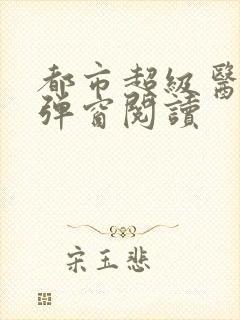 都市超級醫
彈窗閱讀
宋玉悲